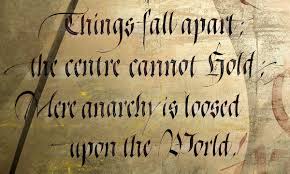 Things fall apart;
the centre cannot Hold;
Mere anarchy is loosed
upon the World.